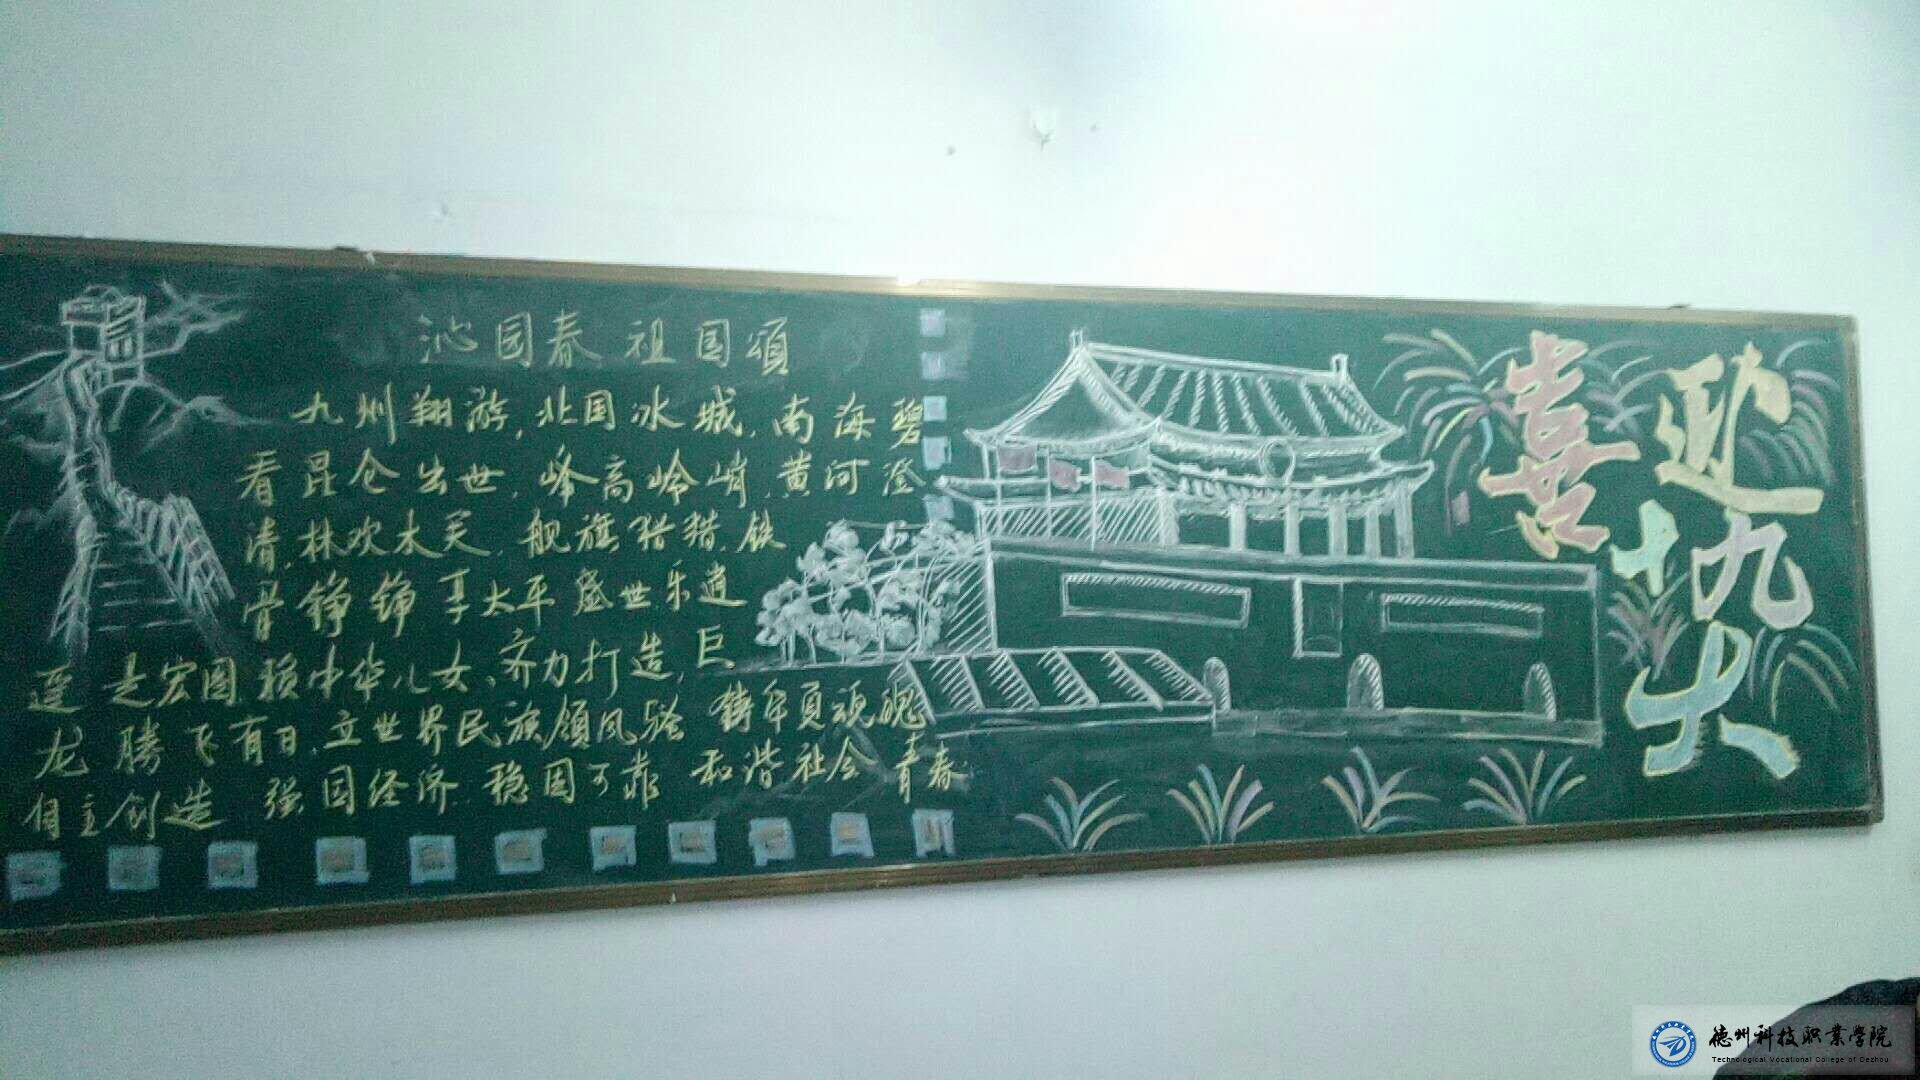 沁园春 祖国颂
九州翔游,北国冰城,南海碧
看昆仑出世,峰高岭峭,黄河澄
清,林欢木笑,舰旗猎猎,铁
骨铮铮 享太平盛世乐逍
遥 是宏图,领中华儿女、齐力打造,巨
龙腾飞有日,立世界民族领风骚 铸军员砚魄
自主创造 强国经济 稳固可靠 和谐社会 青春
喜迎
十九大
德州科技职业学院
Technological Vocational College of Dezhou